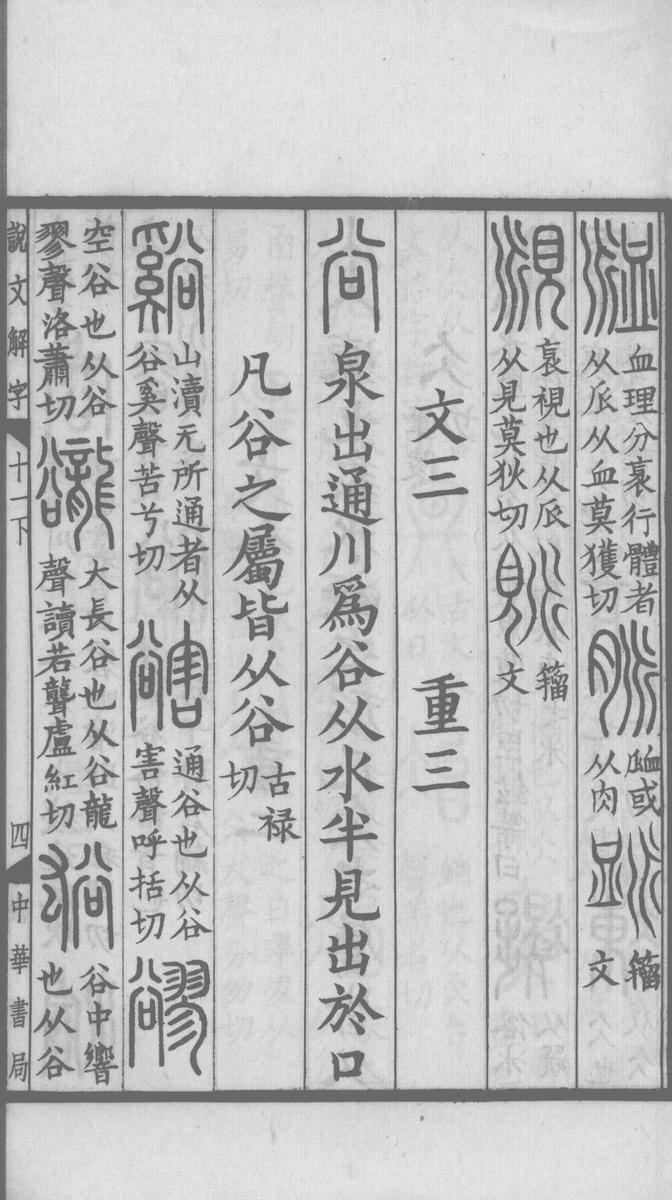 𧖴血理分衺行體者
从𠂢从血莫獲切
脈𧖴或
从肉
𧖴籀
文
覛衺視也从𠂢
从見莫狄切
𥄎籀
文
文三 重三
谷泉出通川爲谷从水半見出於口
凡谷之屬皆从谷古祿
切
谿山瀆无所通者从
谷奚聲苦兮切
豁通谷也从谷
害聲呼括切
豂
空谷也从谷
翏聲洛蕭切
豅大長谷也从谷龍
聲讀若聾盧紅切
谹谷中響
也从谷
說文解字 十一下 四 中華書局